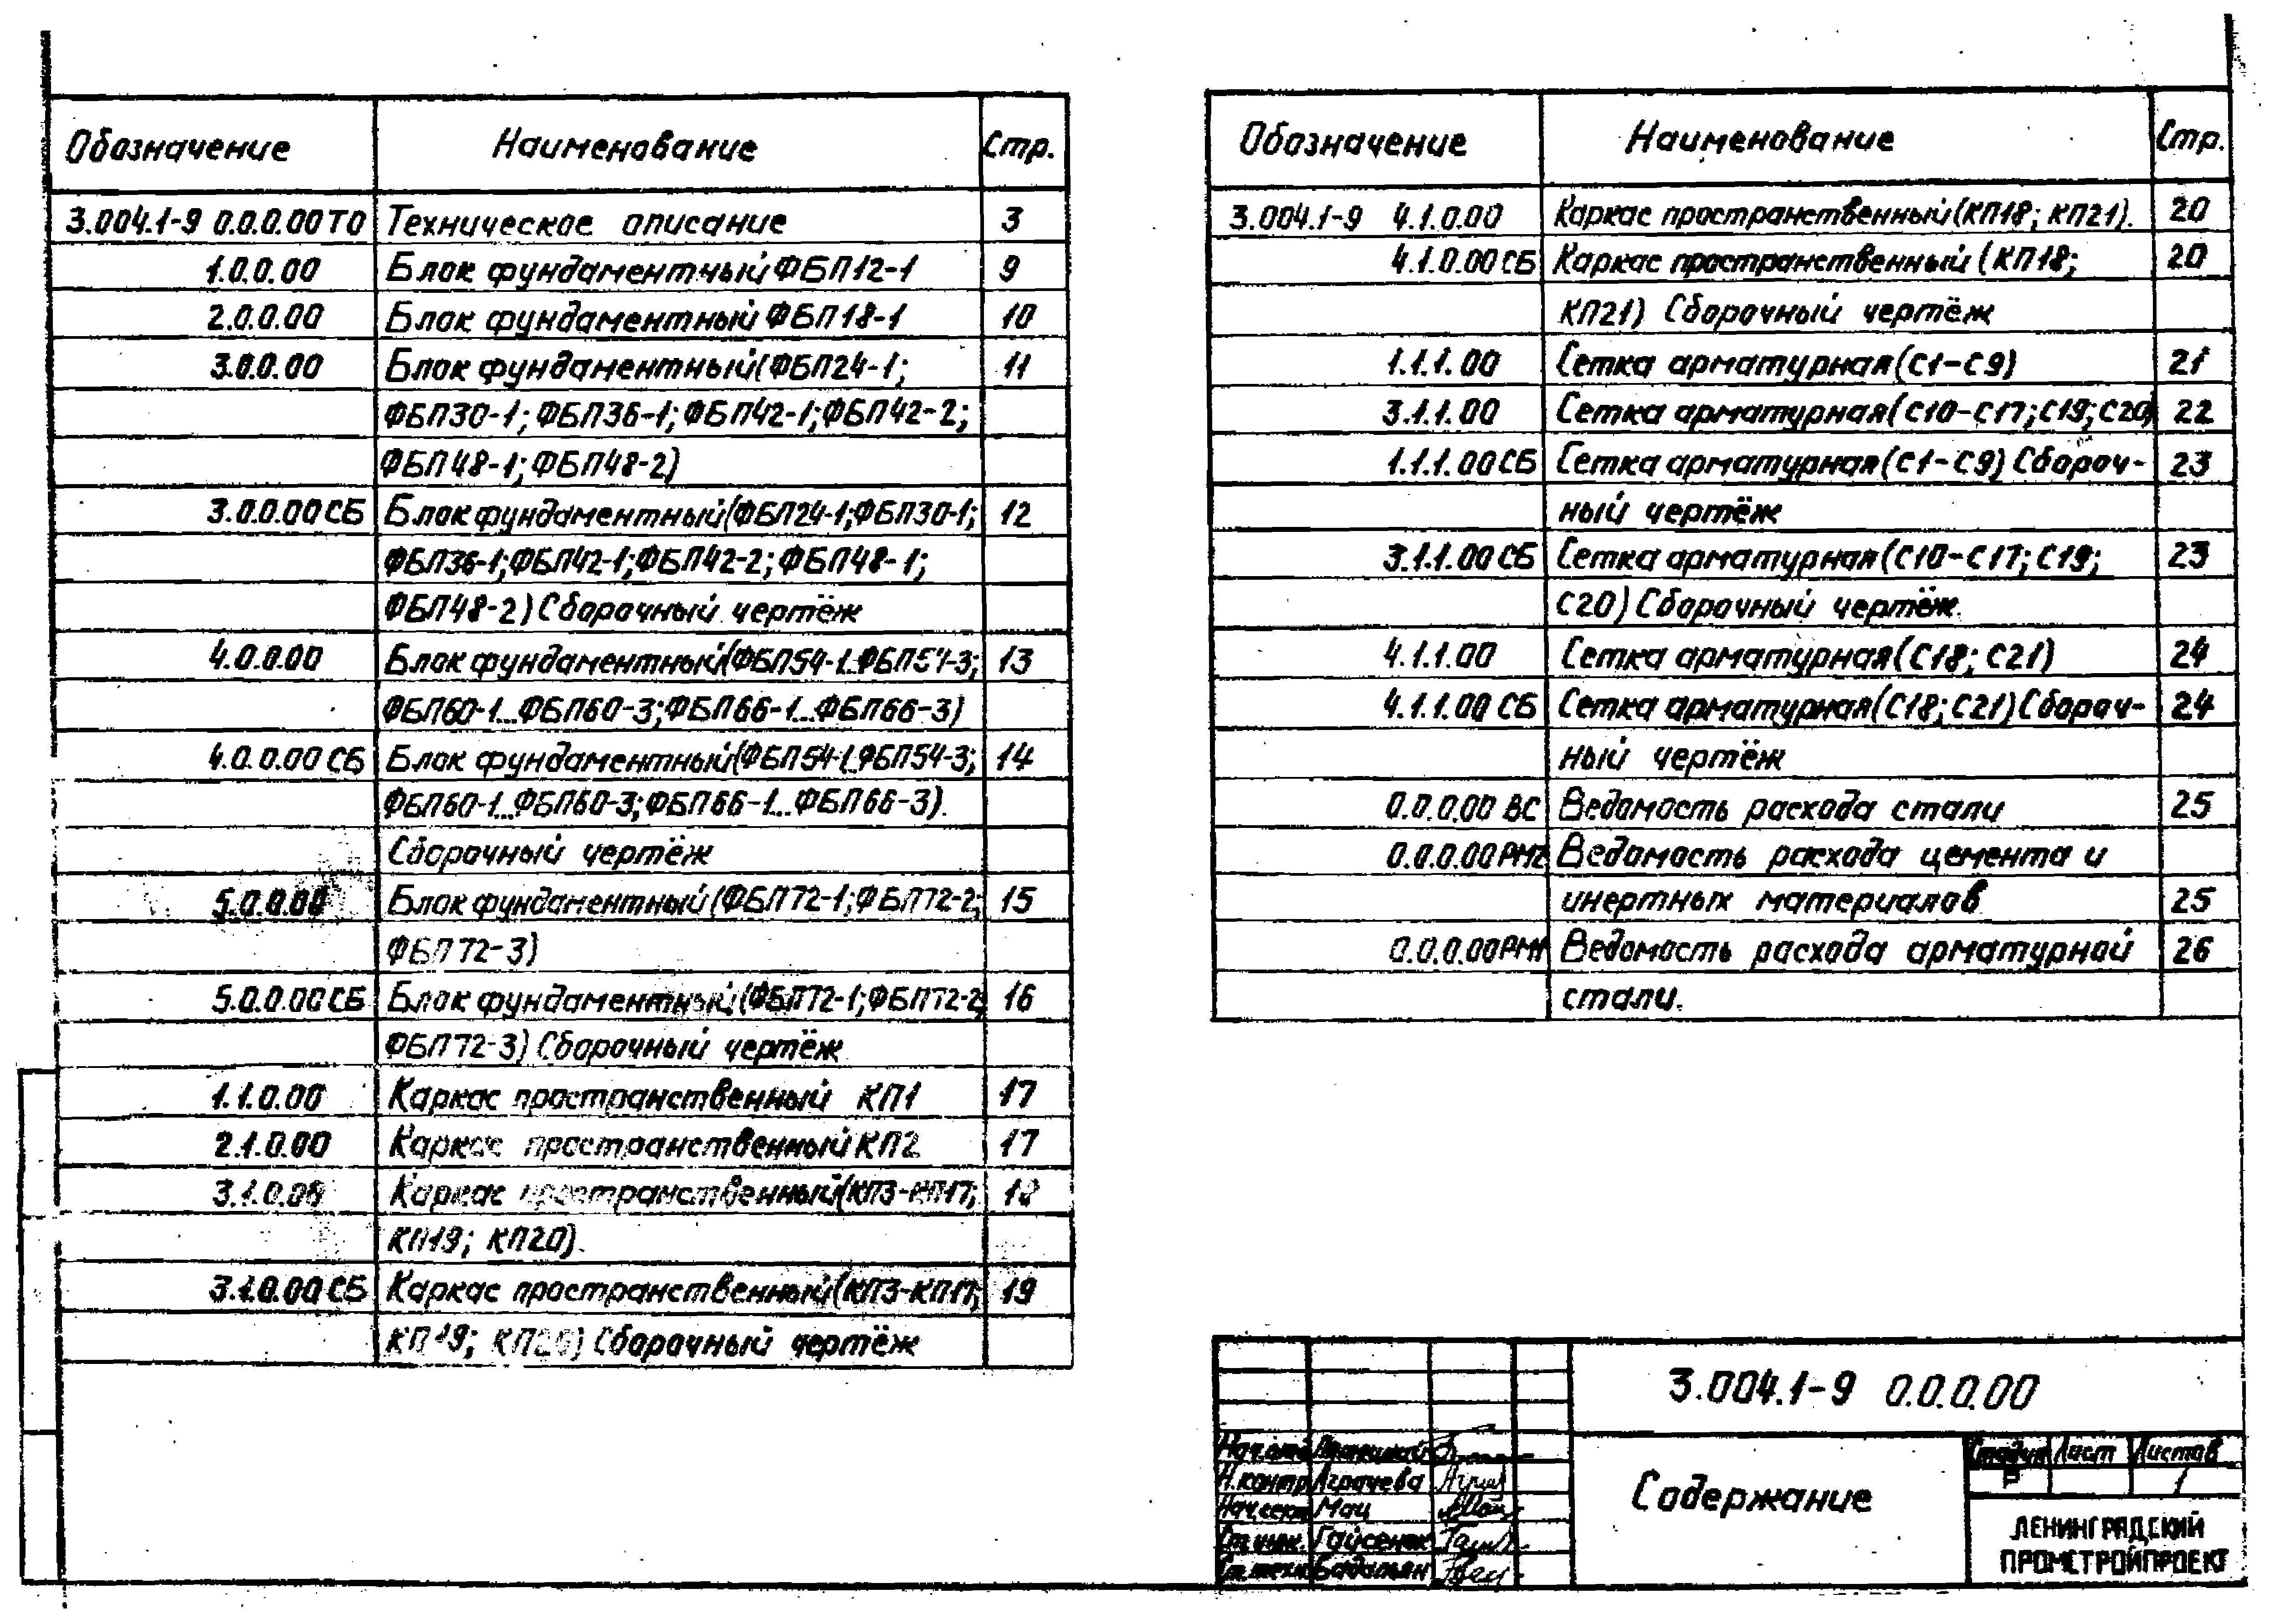 Обозначение Наименование Стр.
3.004.1-9 0.0.0.00ТО Техническое описание 3
1.0.0.00 Блок фундаментный ФБП12-1 9
2.0.0.00 Блок фундаментный ФБП18-1 10
3.0.0.00 Блок фундаментный (ФБП24-1; 11
ФБП30-1; ФБП36-1; ФБП42-1; ФБП42-2;
ФБП48-1; ФБП48-2)
3.0.0.00 СБ Блок фундаментный (ФБП24-1; ФБП30-1; 12
ФБП36-1; ФБП42-1; ФБП42-2; ФБП48-1;
ФБП48-2) Сборочный чертёж
4.0.0.00 Блок фундаментный (ФБП54-1...ФБП54-3; 13
ФБП60-1...ФБП60-3; ФБП66-1...ФБП66-3)
4.0.0.00 СБ Блок фундаментный (ФБП54-1...ФБП54-3; 14
ФБП60-1...ФБП60-3; ФБП66-1...ФБП66-3).
Сборочный чертёж
5.0.0.00 Блок фундаментный (ФБП72-1; ФБП72-2; 15
ФБП72-3)
5.0.0.00 СБ Блок фундаментный (ФБП72-1; ФБП72-2; 16
ФБП72-3) Сборочный чертёж
1.1.0.00 Каркас пространственный КП1 17
2.1.0.00 Каркас пространственный КП2 17
3.1.0.00 Каркас пространственный (КП3-КП17; 18
КП19; КП20).
3.1.0.00 СБ Каркас пространственный (КП3-КП17; 19
КП19; КП20) Сборочный чертёж
Обозначение Наименование Стр.
3.004.1-9 4.1.0.00 Каркас пространственный (КП18; КП21). 20
4.1.0.00 СБ Каркас пространственный (КП18; 20
КП21) Сборочный чертёж
1.1.1.00 Сетка арматурная (С1-С9) 21
3.1.1.00 Сетка арматурная (С10-С17; С19; С20) 22
1.1.1.00 СБ Сетка арматурная (С1-С9) Сбороч- 23
ный чертёж
3.1.1.00 СБ Сетка арматурная (С10-С17; С19; 23
С20) Сборочный чертёж.
4.1.1.00 Сетка арматурная (С18; С21) 24
4.1.1.00 СБ Сетка арматурная (С18; С21) Сбороч- 24
ный чертёж
0.0.0.00 ВС Ведомость расхода стали 25
0.0.0.00 РМ2 Ведомость расхода цемента и
инертных материалов 25
0.0.0.00 РМ1 Ведомость расхода арматурной 26
стали.
3.004.1-9 0.0.0.00
Нач.отд.
Н.контр. Аграчева
Нач.сект. Мац
Ст.инж. Гайсенок
Ст.техн. Бадальян
Содержание
Стадия Лист Листов
Р 1
ЛЕНИНГРАДСКИЙ
ПРОМСТРОЙПРОЕКТ